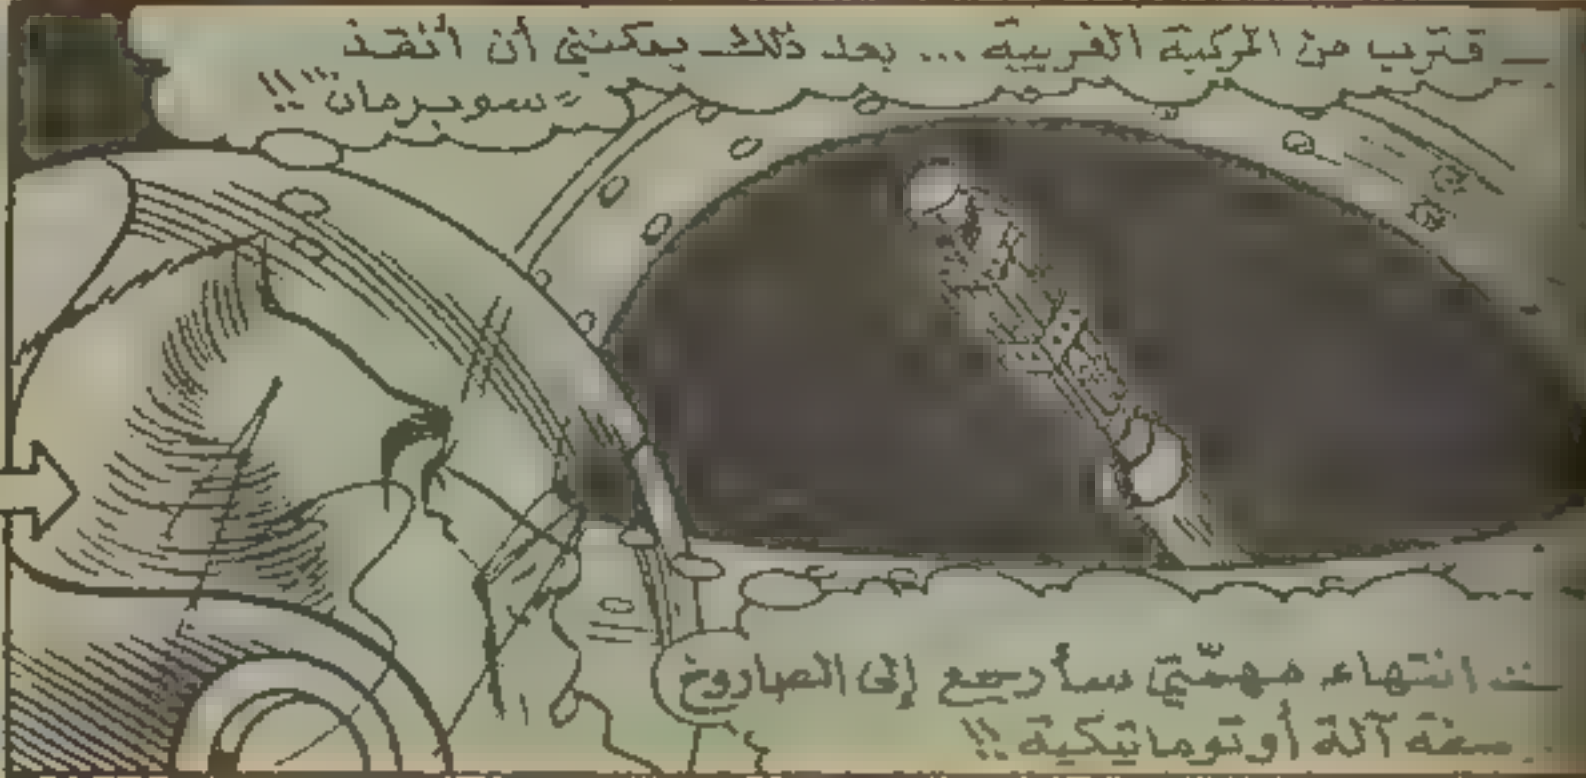 قترب من المركبة الغريبة ... بعد ذلك يمكنني أن أنقذ
"سوبرمان" !!
انتهاء مهمّتي سأرجع إلى الصاروخ
آلة أوتوماتيكية !!